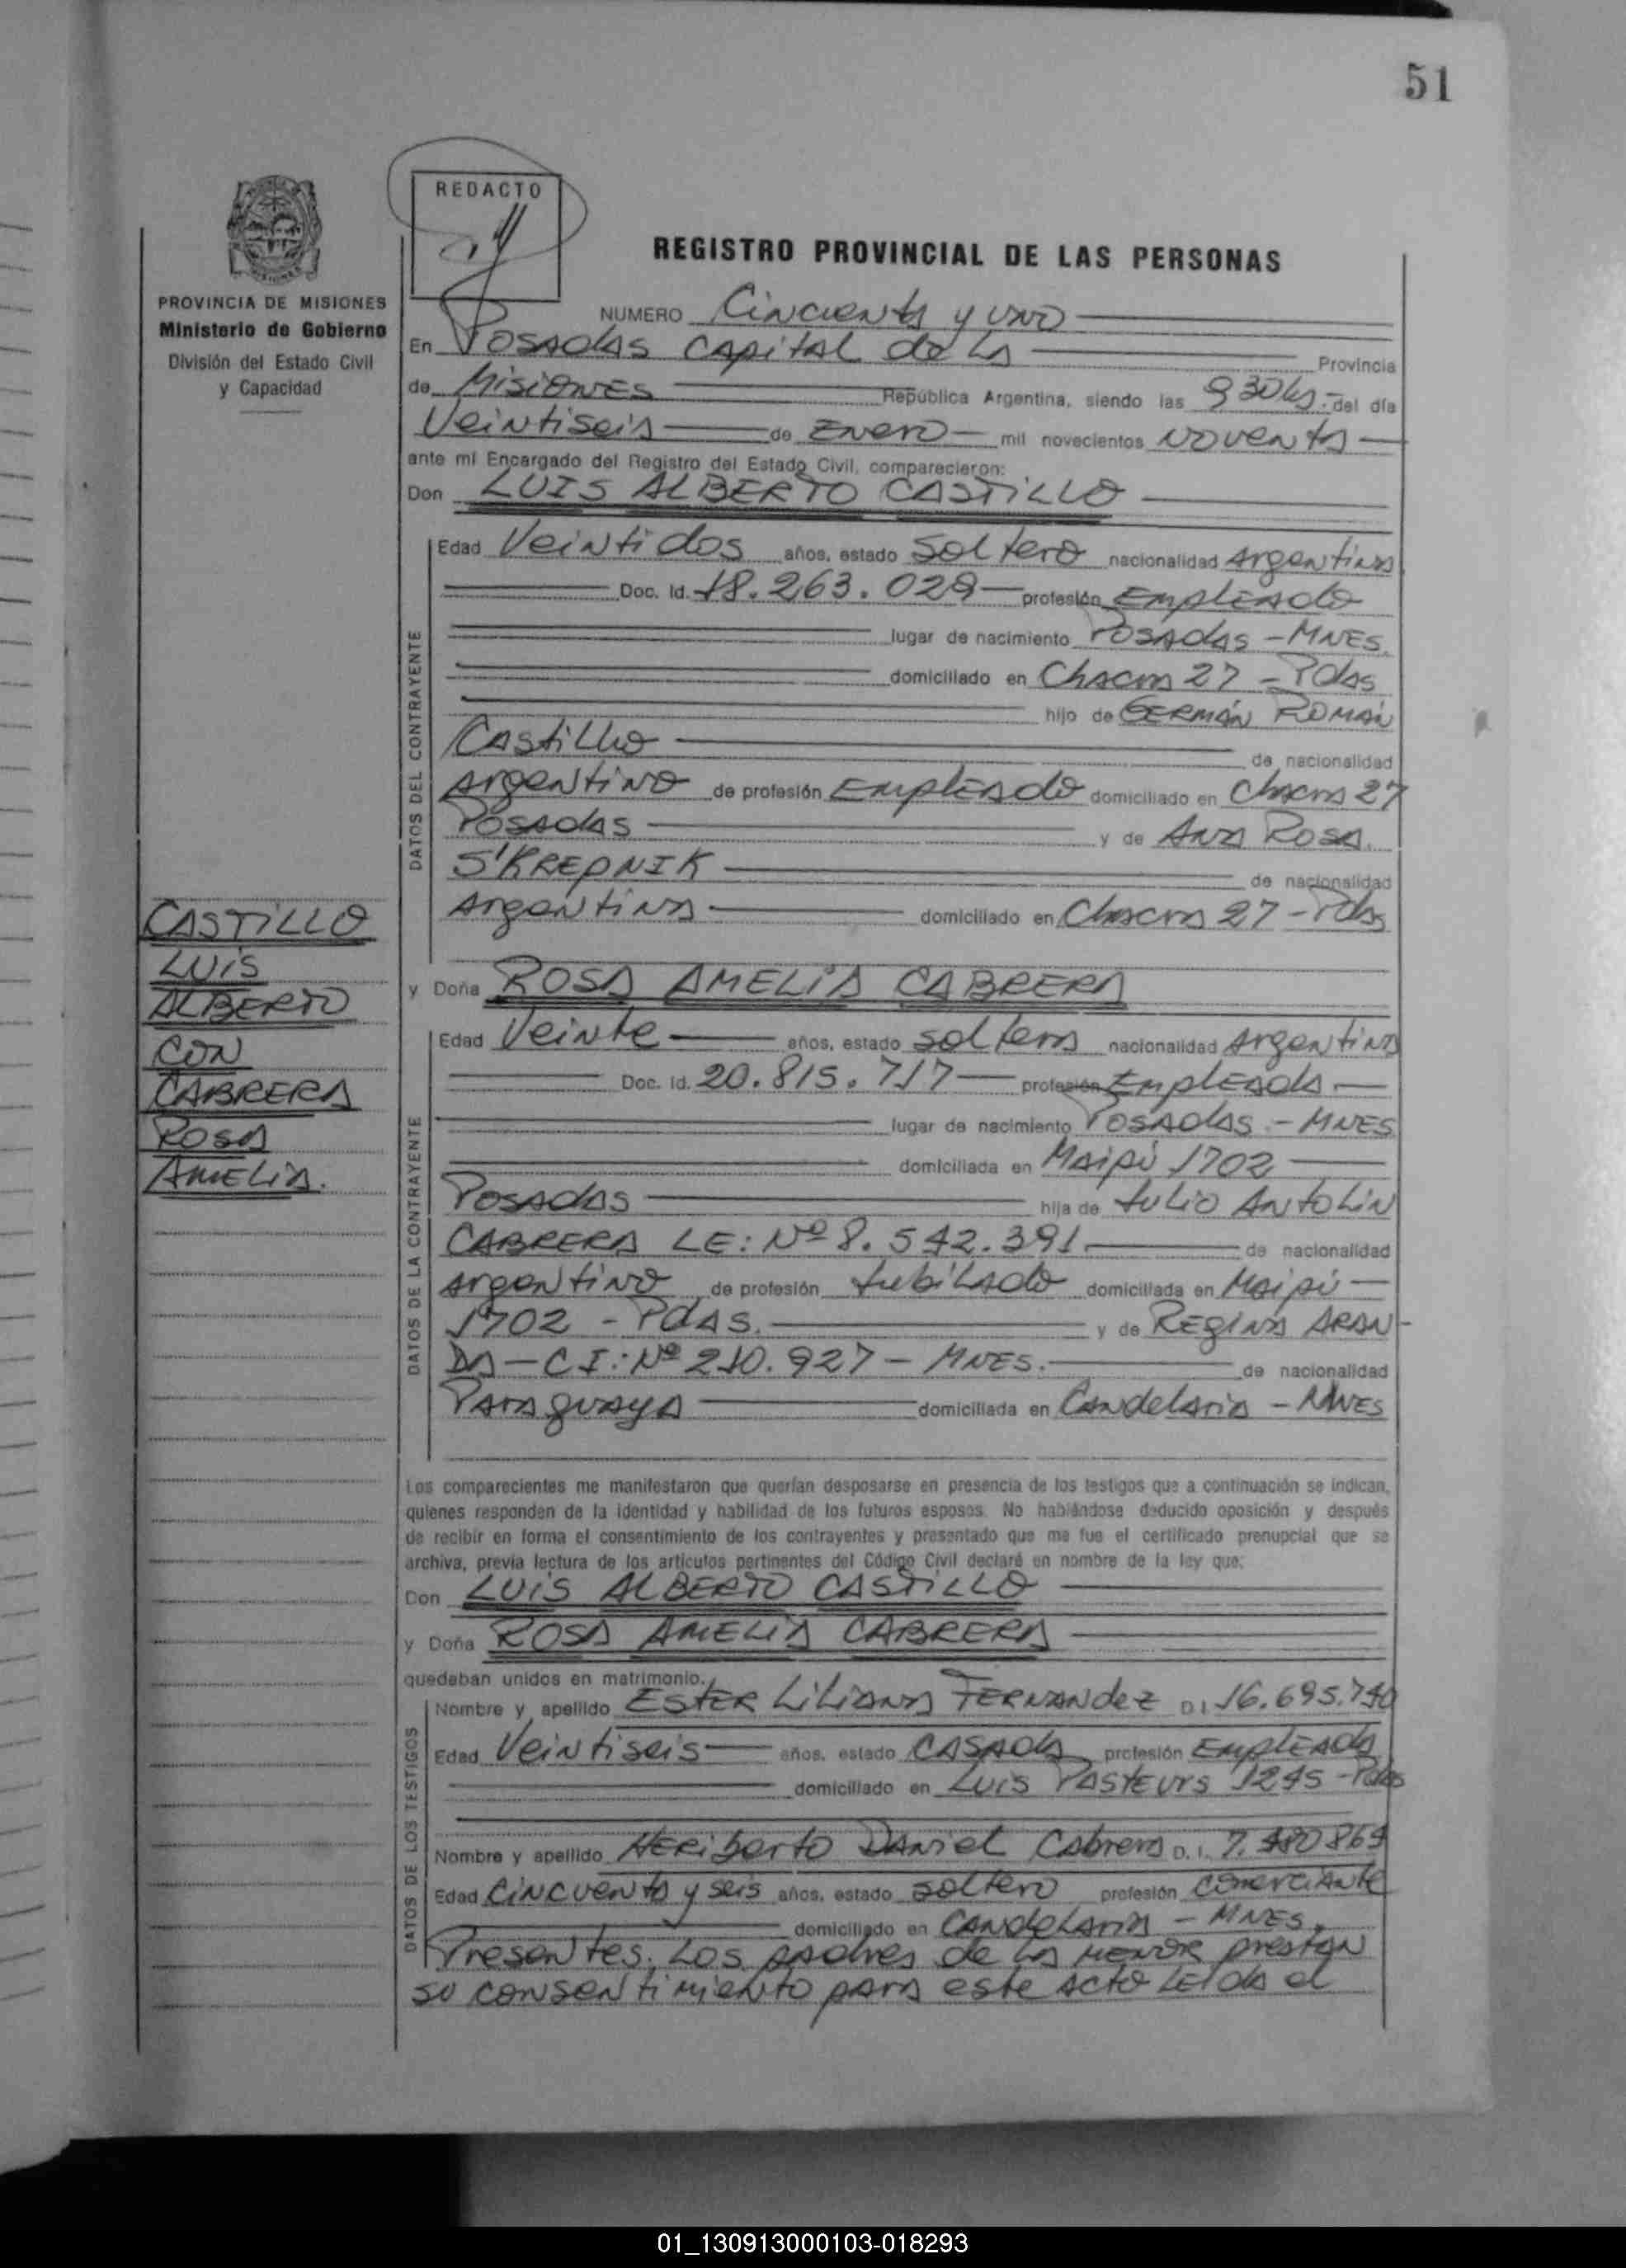 51
REDACTO
PROVINCIA DE MISIONES
Ministerio de Gobierno
División del Estado Civil
y Capacidad
REGISTRO PROVINCIAL DE LAS PERSONAS
NUMERO Cincuenta y uno
En Posadas Capital de la Provincia
de Misiones República Argentina, siendo las 9 30 hs. del día
Veintiseis de Enero mil novecientos noventa
ante mí Encargado del Registro del Estado Civil, comparecieron:
Don LUIS ALBERTO CASTILLO
DATOS DEL CONTRAYENTE
Edad Veintidos años, estado Soltero nacionalidad Argentina
Doc. Id. 18.263.029 profesión Empleado
lugar de nacimiento Posadas - MNES.
domiciliado en Chacra 27 - Pdas
hijo de GERMÁN ROMÁN
Castillo de nacionalidad
Argentino de profesión Empleado domiciliado en Chacra 27
Posadas y de Ana Rosa
S'KREPNIK de nacionalidad
Argentina domiciliado en Chacra 27 - Pdas
y Doña ROSA AMELIA CABRERA
DATOS DE LA CONTRAYENTE
Edad Veinte años, estado Soltera nacionalidad Argentina
Doc. Id. 20.815.717 profesión Empleada
lugar de nacimiento Posadas - MNES
domiciliada en Maipú 1702
Posadas hija de Julio Antolin
CABRERA LE: Nº 8.542.391 de nacionalidad
Argentino de profesión Jubilado domiciliada en Maipú
1702 - Pdas. y de Regina ARAN-
DA - CI: Nº 210.927 - MNES. de nacionalidad
Paraguaya domiciliada en Candelaria - MNES
Los comparecientes me manifestaron que querían desposarse en presencia de los testigos que a continuación se indican,
quienes responden de la identidad y habilidad de los futuros esposos. No habiéndose deducido oposición y después
de recibir en forma el consentimiento de los contrayentes y presentado que me fue el certificado prenupcial que se
archiva, previa lectura de los artículos pertinentes del Código Civil declaré en nombre de la ley que:
Don LUIS ALBERTO CASTILLO
y Doña ROSA AMELIA CABRERA
quedaban unidos en matrimonio.
DATOS DE LOS TESTIGOS
Nombre y apellido ESTER LILIANA FERNANDEZ D.I. 16.695.740
Edad Veintiseis años, estado CASADA profesión Empleada
domiciliado en Luis Pasteurs 1245 - Pdas
Nombre y apellido Heriberto Daniel Cabrera D.I. 7.480869
Edad Cincuenta y seis años, estado soltero profesión Comerciante
domiciliado en Candelaria - MNES.
Presentes. Los padres de la menor prestan
su consentimiento para este acto Leida el
CASTILLO
LUIS
ALBERTO
CON
CABRERA
ROSA
AMELIA.
01_130913000103-018293